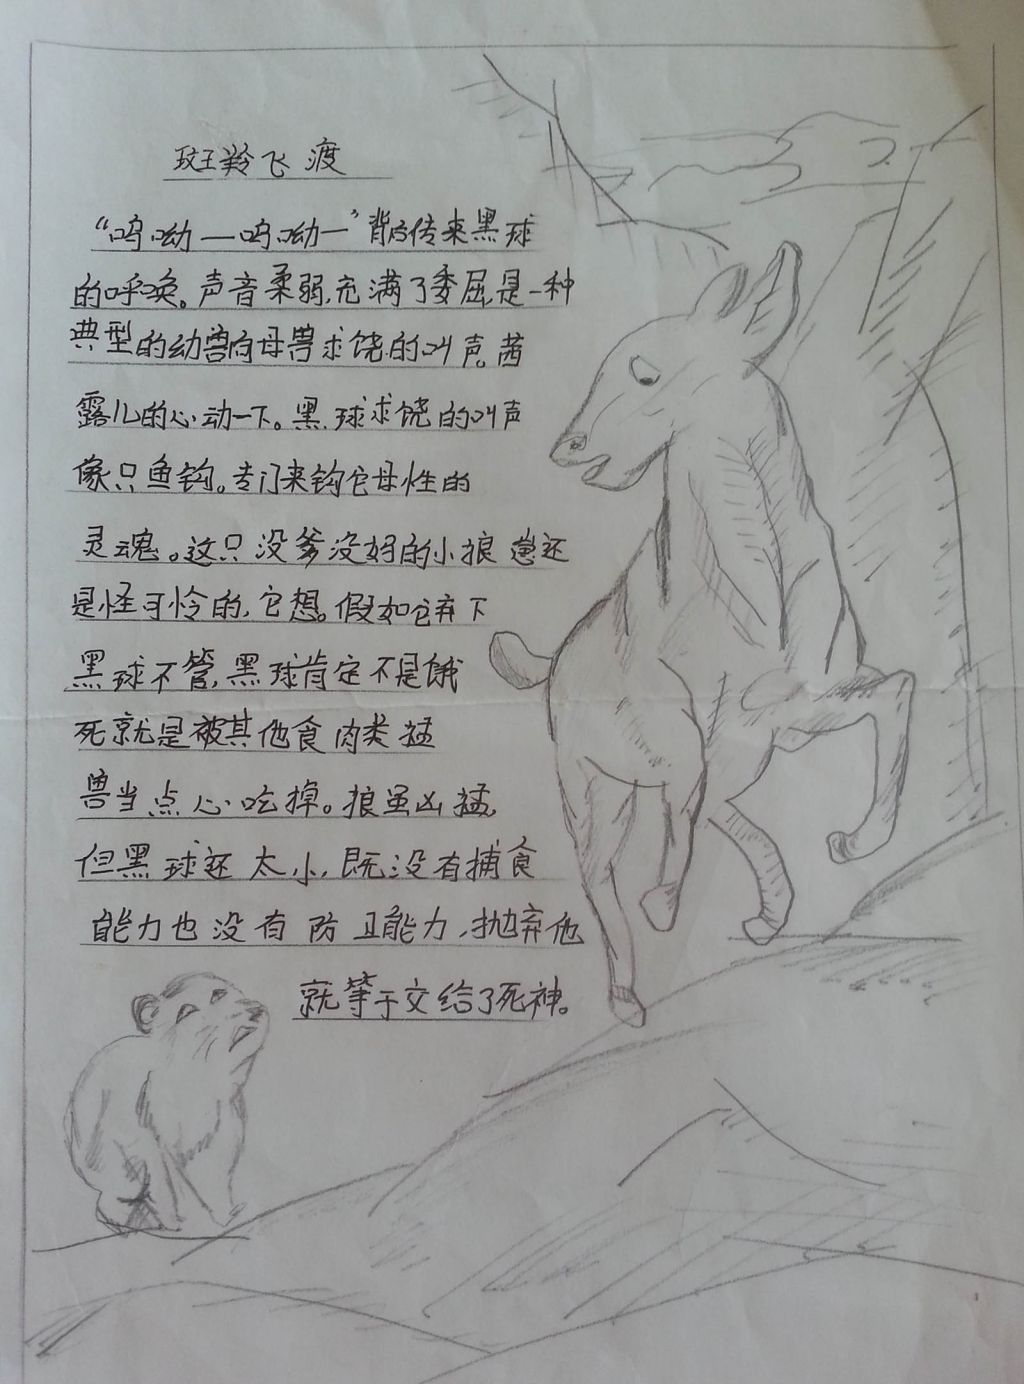 斑羚飞渡
“呜呦——呜呦—”背后传来黑球
的呼唤。声音柔弱,充满了委屈,是一种
典型的幼兽向母兽求饶的叫声。茜
露儿的心动一下。黑球求饶的叫声
像只鱼钩。专门来钩它母性的
灵魂。这只没爹没妈的小狼崽还
是怪可怜的,它想。假如它弃下
黑球不管,黑球肯定不是饿
死就是被其他食肉类猛
兽当点心吃掉。狼虽凶猛,
但黑球还太小,既没有捕食
能力也没有防卫能力,抛弃他
就等于交给了死神。